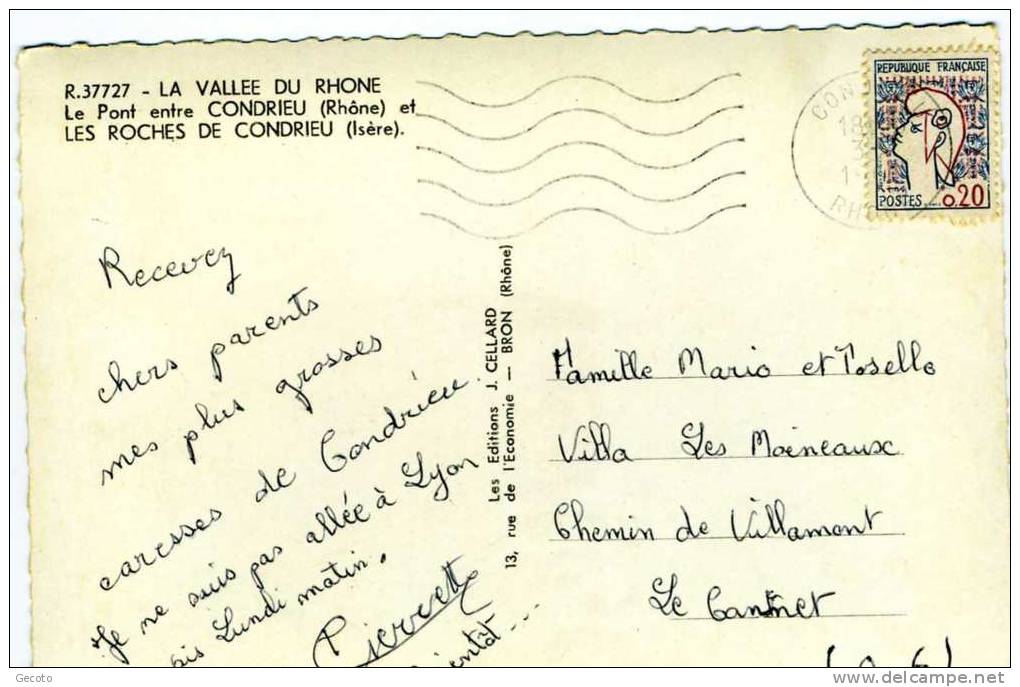 R.37727 - LA VALLEE DU RHONE
Le Pont entre CONDRIEU (Rhône) et
LES ROCHES DE CONDRIEU (Isère).
REPUBLIQUE FRANÇAISE
POSTES 0,20
Recevez
chers parents
mes plus grosses
caresses de Condrieu.
Je ne suis pas allée à Lyon
Lundi matin.
Pierrette
Les Editions J. CELLARD
13, rue de l'Economie — BRON (Rhône)
Famille Mario et Tosello
Villa Les Moineaux
Chemin de Villamont
Le Cannet
Gecoto
delcampe.net